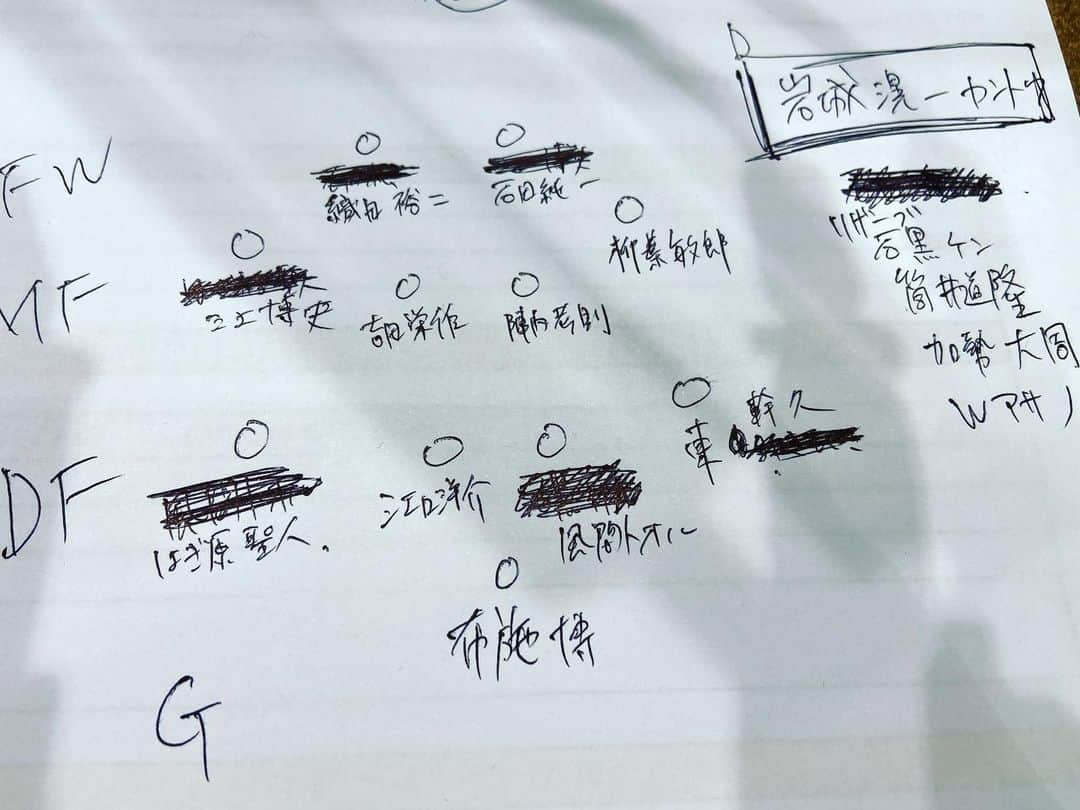 岩城滉一カントク
FW
織田裕二
石田純一
柳葉敏郎
リザーブ
石黒ケン
筒井道隆
加勢大周
Wアサノ
MF
三上博史
吉田栄作
陣内孝則
DF
はぎ原聖人.
江口洋介
風間トオル
東幹久
布施博
G